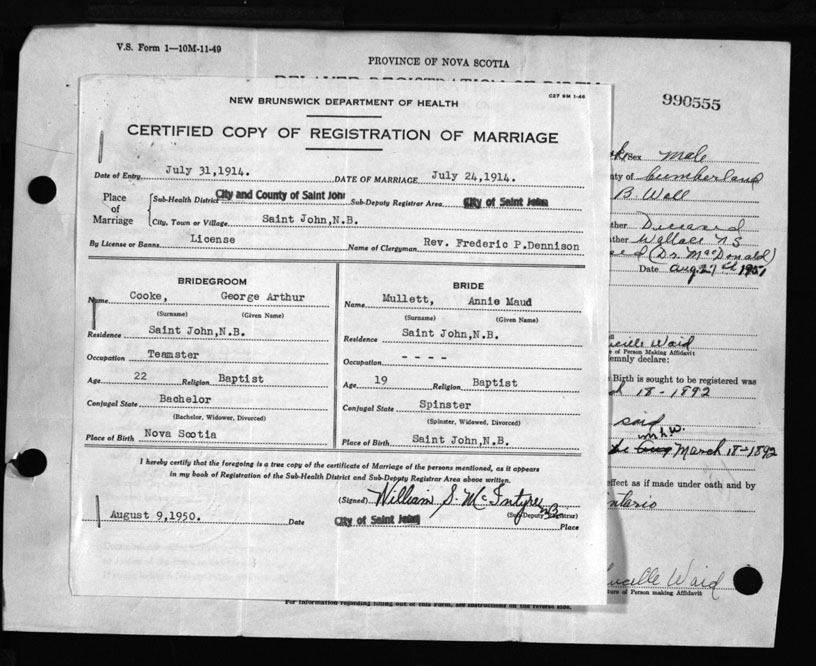 V.S. Form 1—10M-11-49
PROVINCE OF NOVA SCOTIA
DELAYED REGISTRATION OF BIRTH
990555
C27 5M 1-46
NEW BRUNSWICK DEPARTMENT OF HEALTH
CERTIFIED COPY OF REGISTRATION OF MARRIAGE
Date of Entry July 31,1914. DATE OF MARRIAGE July 24,1914.
Place of Marriage
Sub-Health District City and County of Saint John Sub-Deputy Registrar Area City of Saint John
City, Town or Village Saint John,N.B.
By License or Banns License Name of Clergyman Rev. Frederic P.Dennison
BRIDEGROOM
Name Cooke, George Arthur
(Surname) (Given Name)
Residence Saint John,N.B.
Occupation Teamster
Age 22 Religion Baptist
Conjugal State Bachelor
(Bachelor, Widower, Divorced)
Place of Birth Nova Scotia
BRIDE
Name Mullett, Annie Maud
(Surname) (Given Name)
Residence Saint John,N.B.
Occupation - - - -
Age 19 Religion Baptist
Conjugal State Spinster
(Spinster, Widowed, Divorced)
Place of Birth Saint John,N.B.
I hereby certify that the foregoing is a true copy of the certificate of Marriage of the persons mentioned, as it appears
in my book of Registration of the Sub-Health District and Sub-Deputy Registrar Area above written.
(Signed) William S. McIntyre
(Sub-Deputy Registrar)
August 9,1950. Date City of Saint John Place
Sex Male
ty of Cumberland
B. Wall
ther Deceased
ther Wallace NS
(Dr. MacDonald)
Date Aug. 27 1951
Lucille Waid
e of Person Making Affidavit
emnly declare:
Birth is sought to be registered was
18-1892
said
March 18-1892
effect as if made under oath and by
ntario
Lucille Waid
ture of Person making Affidavit
For information regarding filling out of this Form, see instructions on the reverse side.